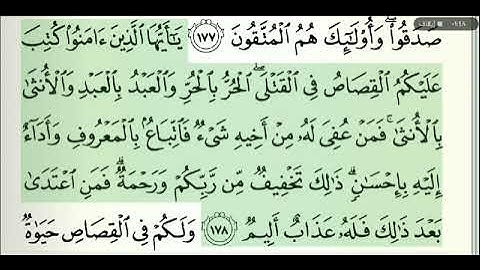 صَدَقُوا۟ ۖ وَأُو۟لَـٰٓئِكَ هُمُ ٱلْمُتَّقُونَ ١٧٧ يَـٰٓأَيُّهَا ٱلَّذِينَ ءَامَنُوا۟ كُتِبَ
عَلَيْكُمُ ٱلْقِصَاصُ فِى ٱلْقَتْلَى ۖ ٱلْحُرُّ بِٱلْحُرِّ وَٱلْعَبْدُ بِٱلْعَبْدِ وَٱلْأُنثَىٰ
بِٱلْأُنثَىٰ ۚ فَمَنْ عُفِىَ لَهُۥ مِنْ أَخِيهِ شَىْءٌ فَٱتِّبَاعٌۢ بِٱلْمَعْرُوفِ وَأَدَآءٌ
إِلَيْهِ بِإِحْسَـٰنٍ ۗ ذَٰلِكَ تَخْفِيفٌ مِّن رَّبِّكُمْ وَرَحْمَةٌ ۗ فَمَنِ ٱعْتَدَىٰ
بَعْدَ ذَٰلِكَ فَلَهُۥ عَذَابٌ أَلِيمٌ ١٧٨ وَلَكُمْ فِى ٱلْقِصَاصِ حَيَوٰةٌ